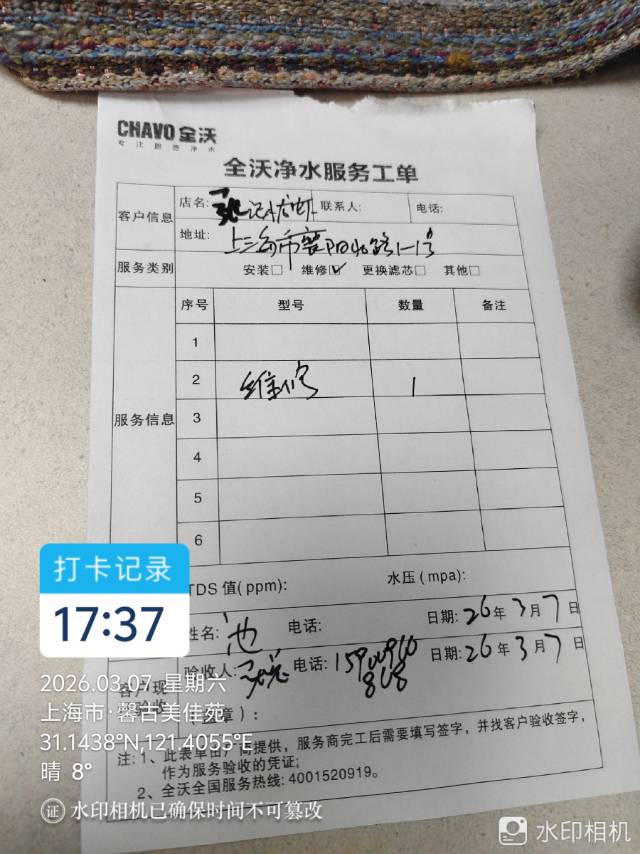 CHAVO 全沃
专注厨房净水
全沃净水服务工单
客户信息 店名: 联系人: 电话:
地址: 上海市襄阳北路1-1号
服务类别 安装□ 维修☑ 更换滤芯□ 其他□
服务信息 序号 型号 数量 备注
1
2 维修 1
3
4
5
6
TDS 值(ppm): 水压(mpa):
姓名: 池 电话: 日期: 26 年 3 月 7 日
验收人: 电话: 日期: 26 年 3 月 7 日
客户现
章):
注: 1、此表单由厂商提供，服务商完工后需要填写签字，并找客户验收签字，
作为服务验收的凭证;
2、全沃全国服务热线: 4001520919。
打卡记录
17:37
2026.03.07 星期六
上海市·馨古美佳苑
31.1438°N,121.4055°E
晴 8°
证 水印相机已确保时间不可篡改
水印相机